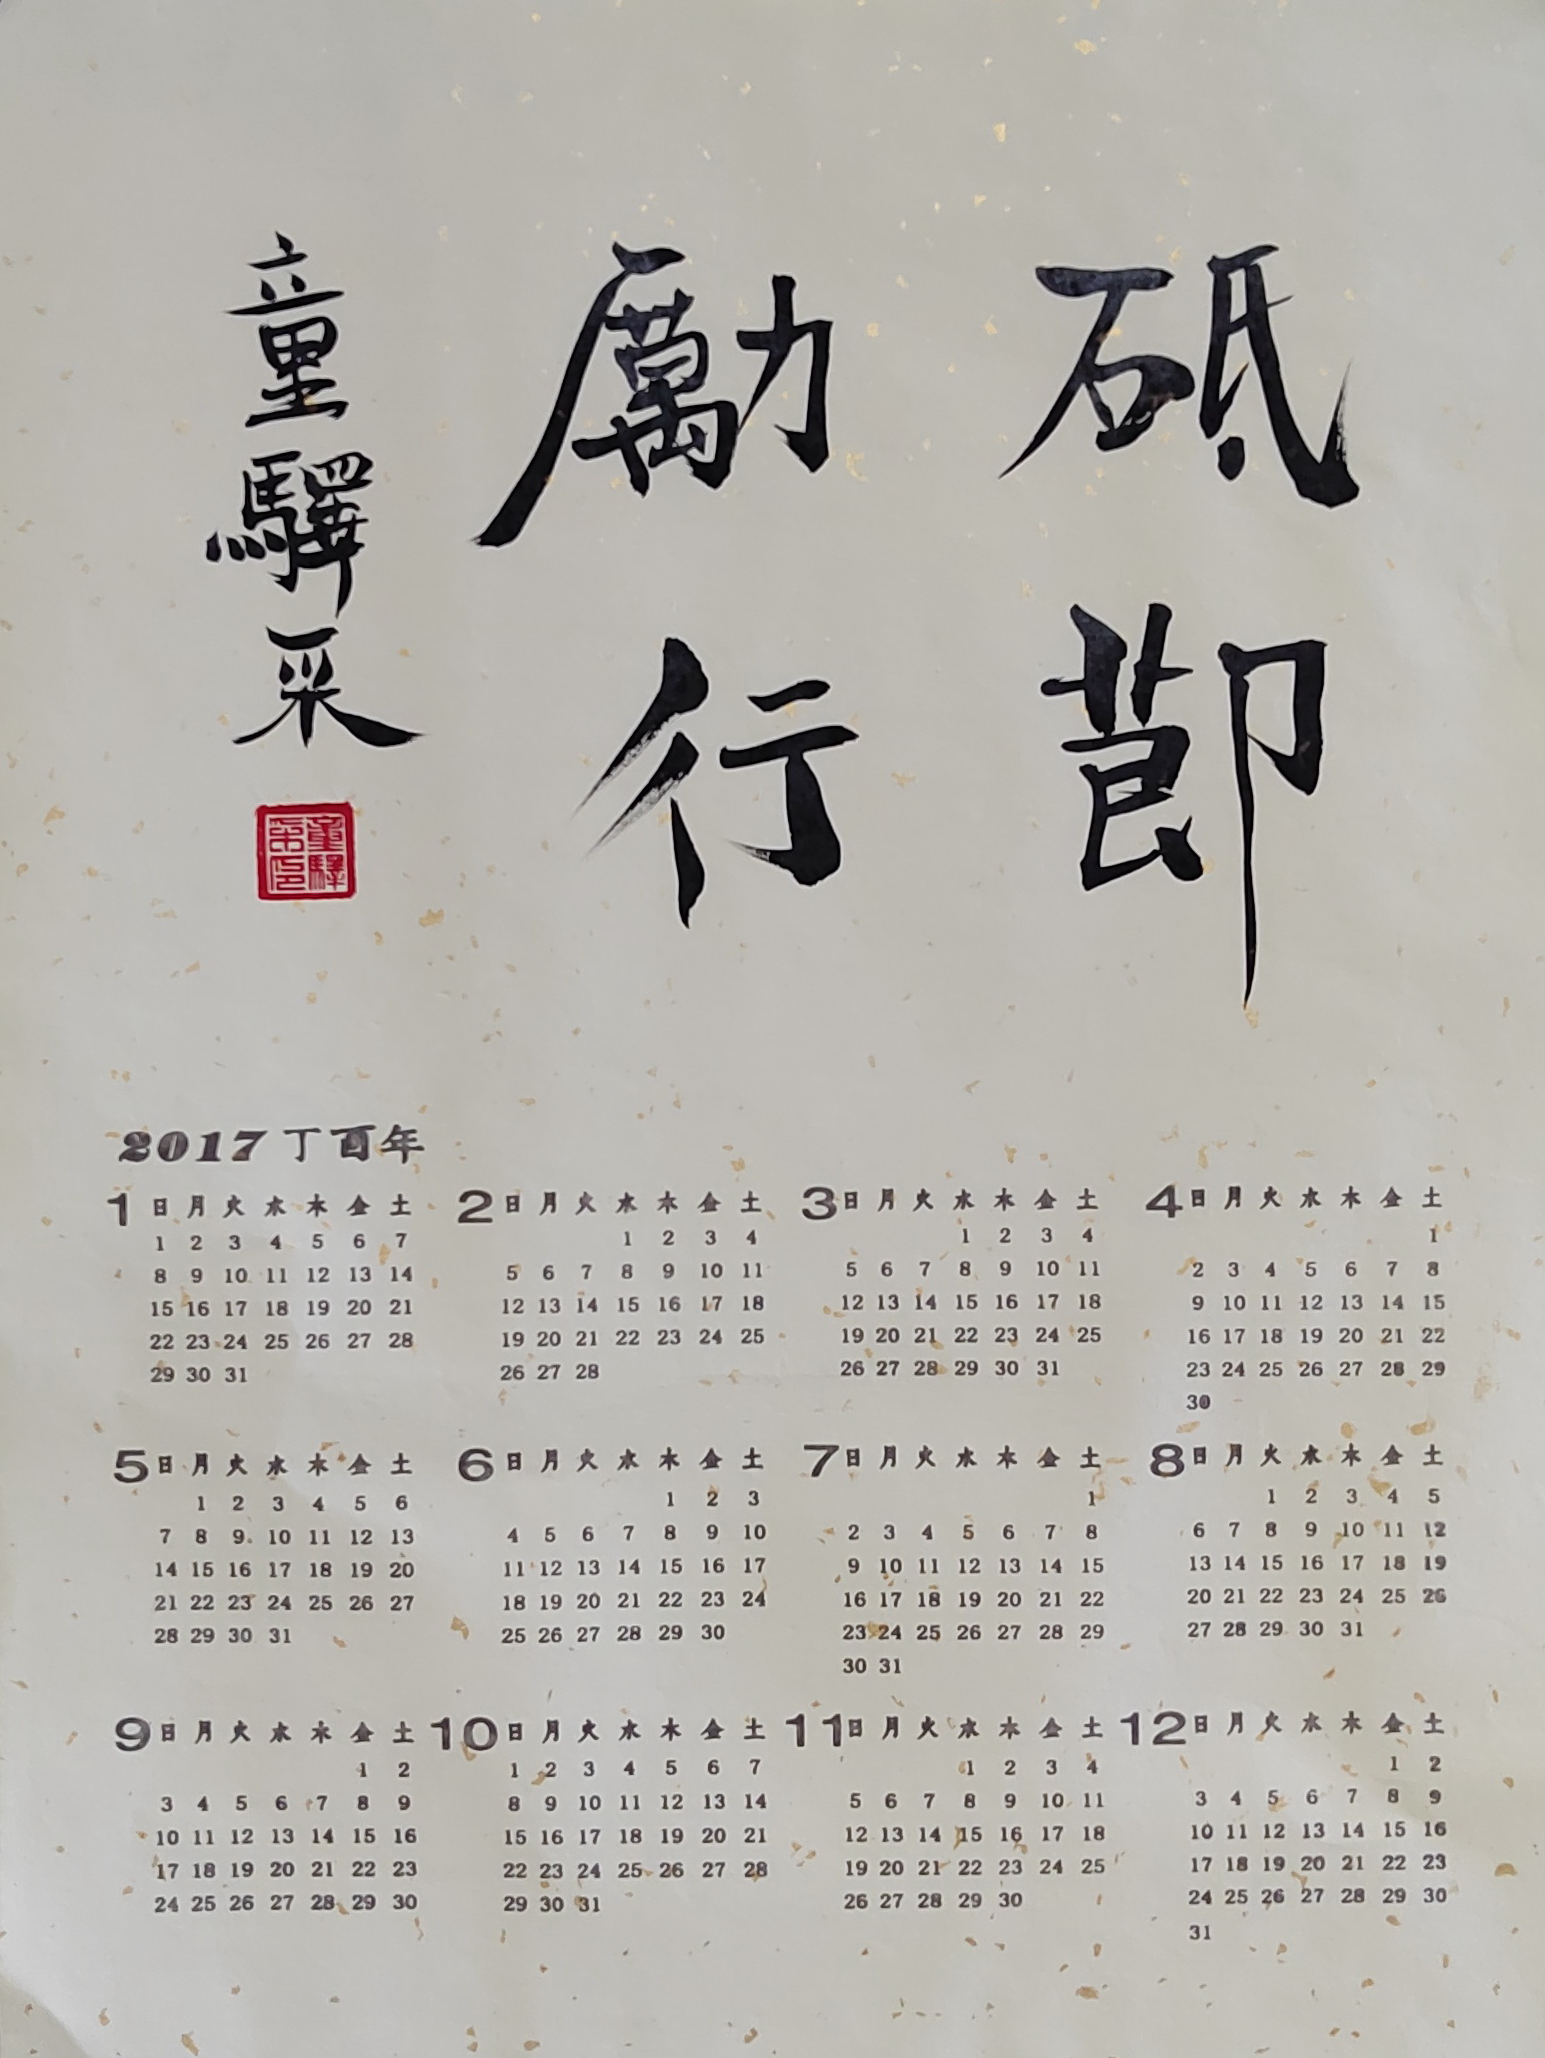 砥節
勵行
童驛采
童驛
采印
2017丁酉年
1 日 月 火 水 木 金 土
1 2 3 4 5 6 7
8 9 10 11 12 13 14
15 16 17 18 19 20 21
22 23 24 25 26 27 28
29 30 31
2 日 月 火 水 木 金 土
1 2 3 4
5 6 7 8 9 10 11
12 13 14 15 16 17 18
19 20 21 22 23 24 25
26 27 28
3 日 月 火 水 木 金 土
1 2 3 4
5 6 7 8 9 10 11
12 13 14 15 16 17 18
19 20 21 22 23 24 25
26 27 28 29 30 31
4 日 月 火 水 木 金 土
1
2 3 4 5 6 7 8
9 10 11 12 13 14 15
16 17 18 19 20 21 22
23 24 25 26 27 28 29
30
5 日 月 火 水 木 金 土
1 2 3 4 5 6
7 8 9 10 11 12 13
14 15 16 17 18 19 20
21 22 23 24 25 26 27
28 29 30 31
6 日 月 火 水 木 金 土
1 2 3
4 5 6 7 8 9 10
11 12 13 14 15 16 17
18 19 20 21 22 23 24
25 26 27 28 29 30
7 日 月 火 水 木 金 土
1
2 3 4 5 6 7 8
9 10 11 12 13 14 15
16 17 18 19 20 21 22
23 24 25 26 27 28 29
30 31
8 日 月 火 水 木 金 土
1 2 3 4 5
6 7 8 9 10 11 12
13 14 15 16 17 18 19
20 21 22 23 24 25 26
27 28 29 30 31
9 日 月 火 水 木 金 土
1 2
3 4 5 6 7 8 9
10 11 12 13 14 15 16
17 18 19 20 21 22 23
24 25 26 27 28 29 30
10 日 月 火 水 木 金 土
1 2 3 4 5 6 7
8 9 10 11 12 13 14
15 16 17 18 19 20 21
22 23 24 25 26 27 28
29 30 31
11 日 月 火 水 木 金 土
1 2 3 4
5 6 7 8 9 10 11
12 13 14 15 16 17 18
19 20 21 22 23 24 25
26 27 28 29 30
12 日 月 火 水 木 金 土
1 2
3 4 5 6 7 8 9
10 11 12 13 14 15 16
17 18 19 20 21 22 23
24 25 26 27 28 29 30
31